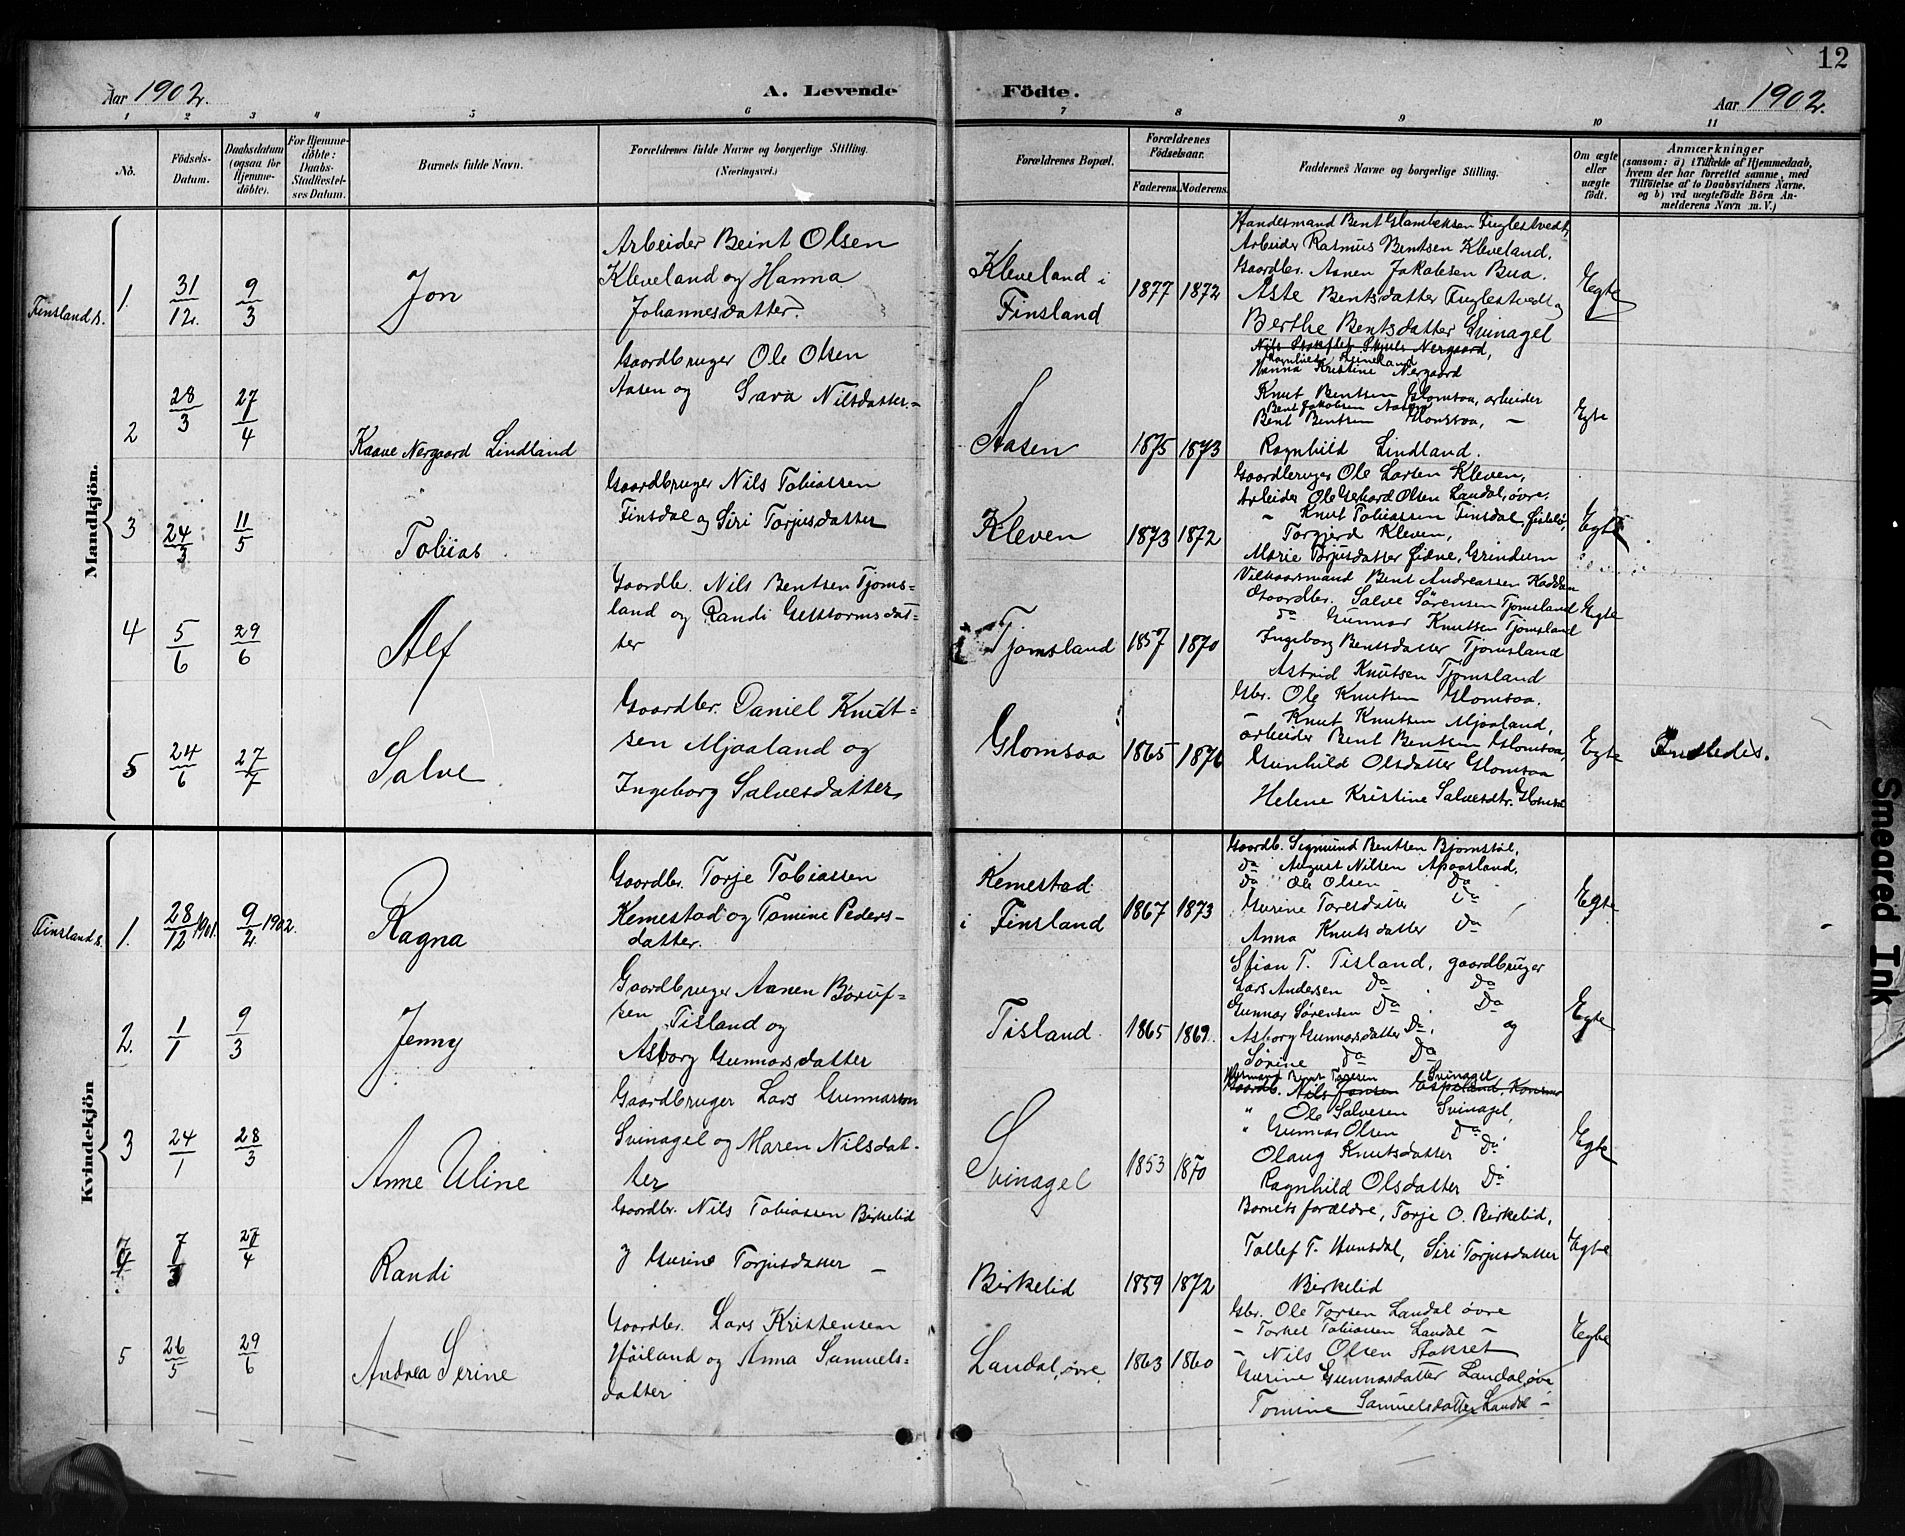 12
Aar 1902.
A. Levende
Fødte.
Aar 1902.
1 2 3 4 5 6 7 8 9 10 11
No.
Fødsels-
Datum.
Daabsdatum
(ogsaa for
Hjemme-
døbte).
For Hjemme-
døbte:
Daabs-
Stadfæstel-
ses Datum.
Barnets fulde Navn.
Forældrenes fulde Navne og borgerlige Stilling.
(Næringsvei.)
Forældrenes Bopæl.
Forældrenes
Fødselsaar.
Faderens. Moderens.
Faddernes Navne og borgerlige Stilling.
Om ægte
eller
uægte
født.
Anmærkninger
(saasom: a) i Tilfælde af Hjemmedaab,
hvem der har forrettet samme, med
Tilføielse af to Daabsvidners Navne,
og b) ved uægtefødte Børn An-
melderens Navn m. V.)
Mandkjøn.
Finsland s.
1.
31/12.
9/3
Jon
Arbeider Beint Olsen
Kleveland og Hanna
Johannesdatter.
Kleveland i
Finsland
1877 1872
Bent Fuglestvedt,
Arbeider Rasmus Bentsen Kleveland,
Gaardbr. Aanen Jakobsen Bua.
Aste Bentsdatter Fuglestvedt og
Berthe Bentsdatter Svinagel
Egte
2
28/3
27/4
Kaave Nergaard Lindland
Gaardbruger Ole Olsen
Aasen og Sara Nilsdatter. –
Aasen
1875 1873
Nils Nergaard,
Hanna Kristine Nergaard
Knut Bentsen Glomsaa, arbeider
Bent Jakobsen Aasen
Bent Bentsen Glomsaa, –
Ragnhild Lindland.
Egte
3
24/3
11/5
Tobias.
Gaardbruger Nils Tobiassen
Finsdal og Siri Torjusdatter
Kleven
1873 1872
Gaardbruger Ole Larsen Kleven,
Arbeider Ole Gerhard Olsen Landal, øvre,
– Knut Tobiassen Finsdal,
Torgjerd Kleven,
Marie Torjusdatter Grindum
Egte
4
5/6
29/6
Alf
Gaardbr. Nils Bentsen Tjoms-
land og Randi Guttormsdat-
ter
i Tjomsland
1857 1870
Vilkaarsmand Bent Andreassen
Gaardbr. Salve Sørensen Tjomsland
do Gunnar Knutsen Tjomsland
Ingeborg Bentsdatter Tjomsland
Astrid Knutsen Tjomsland
Egte
5
24/6
27/7
Salve
Gaardbr. Daniel Knut-
sen Mjaaland og
Ingeborg Salvesdatter
Glomsaa
1865 1876
Gbr. Ole Knutsen Glomsaa.
– Knut Knutsen Mjaaland,
arbeider Bent Bentsen Glomsaa,
Gunhild Olsdatter Glomsaa
Helene Kristine Salvesdtr. Glomsaa
Egte
Kvindekjøn
Finsland s.
1.
28/12 1901.
9/2 1902.
Ragna
Gaardbr. Torje Tobiassen
Kemestad og Tomine Peders-
datter.
Kemestad
i Finsland
1867 1873
Gaardb. Sigmund Bentsen Bjornstøl,
Do August Nilsen
Do Ole Olsen Do
Gurine Toresdatter Do
Anna Knutsdatter Do
Egte
2.
1/1
9/3
Jenny
Gaardbruger Aanen Børuf-
sen Tisland og
Asborg Gunnarsdatter
Tisland.
1865 1869.
Stian T. Tisland, gaardbruger
Lars Andersen Do Do
Gunnar Sørensen Do Do
Asborg Gunnarsdatter Do, og
Sørine Do Do
Egte
3
24/1
28/3
Anne Uline
Gaardbruger Lars Gunnarsen
Svinagel og Maren Nilsdat-
ter
Svinagel
1853 1870
Bent Toresen Svinagel,
Gaardb. Nils
" Ole Salvesen Svinagel,
" Gunnar Olsen Do
Olaug Knutsdatter Do
Ragnhild Olsdatter Do
Egte
4
7/3
27/4
Randi
Gaardbr. Nils Tobiassen Birkelid
og Gurine Torjusdatter –
Birkelid
1859 1872
Barnets forældre, Torje O. Birkelid,
Tollef T. Hunsdal, Siri Torjusdatter
Birkelid
Egte
5
26/5
29/6
Andrea Serine
Gaardbr. Lars Kristensen
Høiland og Anna Samuels-
datter
Landal, øvre
1863 1860
Gbr. Ole Torsen Landal øvre
– Torkel Tobiassen Landal –
– Nils Olsen Stokset
Gurine Gunnarsdatter Landal, øvre
Tomine Samuelsdatter Landal –
Egte
Smeared Ink